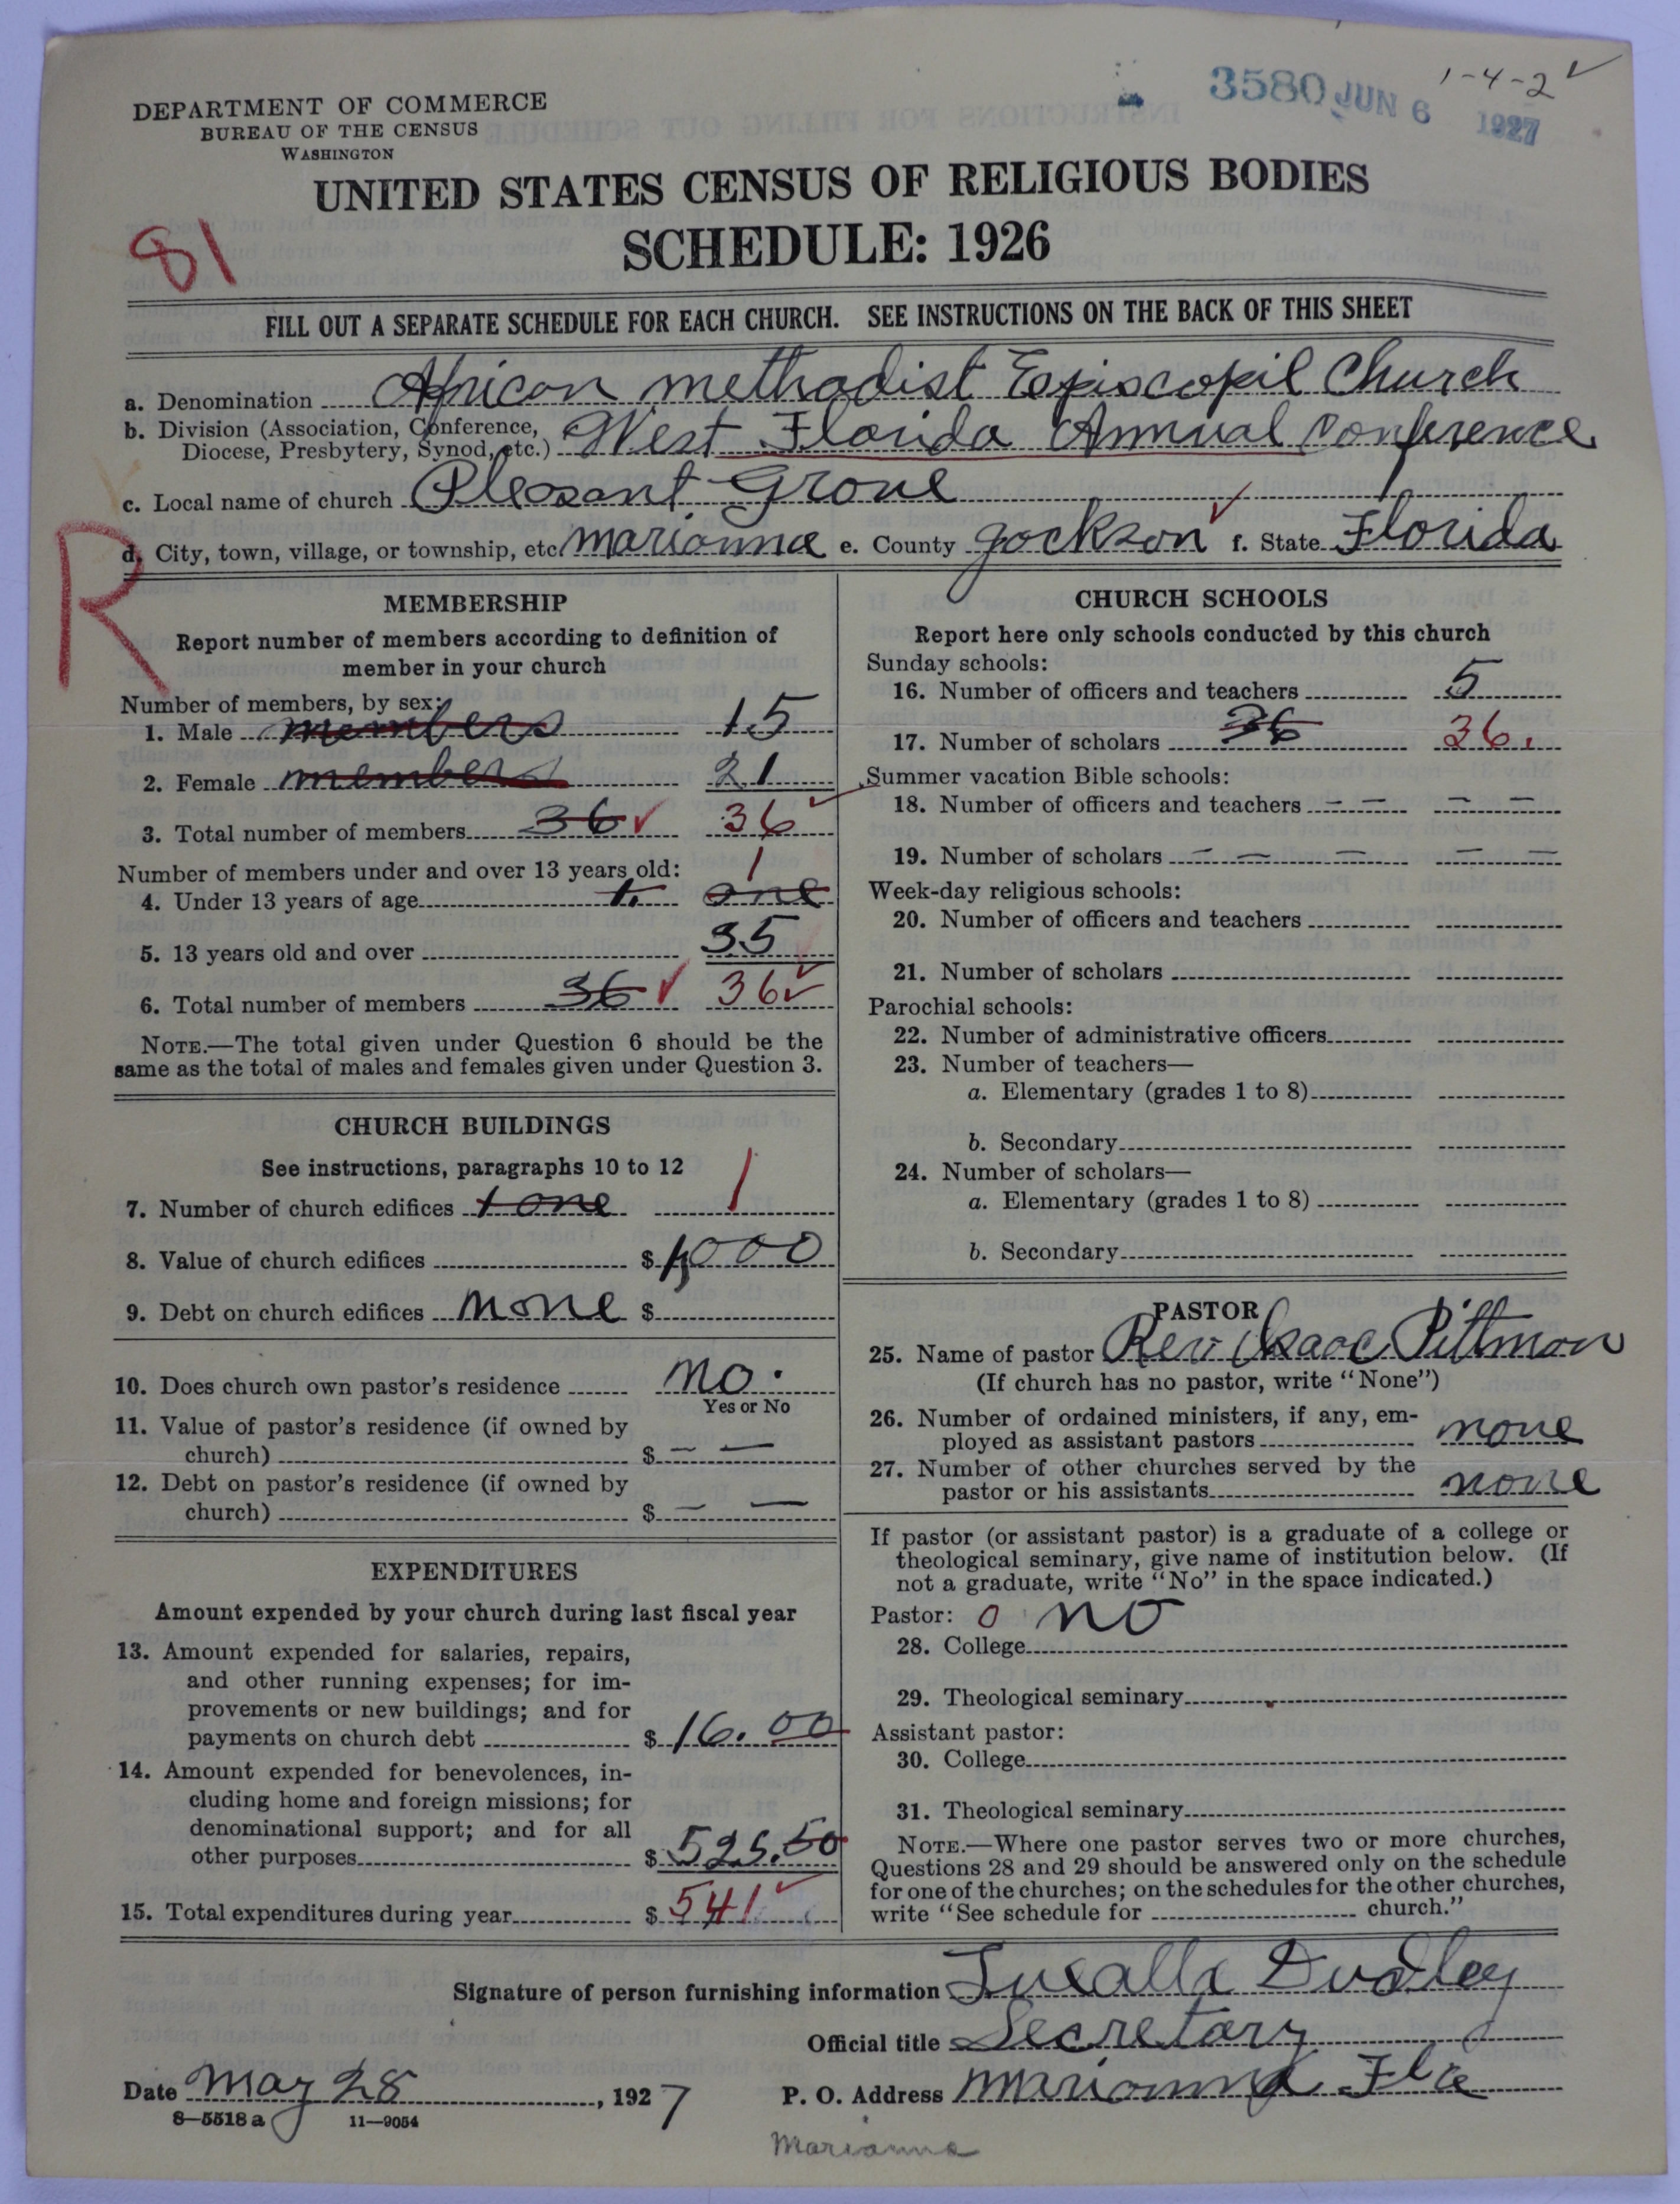 3580 JUN 6 1927
1-4-2 ✓
DEPARTMENT OF COMMERCE
BUREAU OF THE CENSUS
WASHINGTON
UNITED STATES CENSUS OF RELIGIOUS BODIES
SCHEDULE: 1926
81
FILL OUT A SEPARATE SCHEDULE FOR EACH CHURCH. SEE INSTRUCTIONS ON THE BACK OF THIS SHEET
a. Denomination African methodist Episcopil Church
b. Division (Association, Conference,
Diocese, Presbytery, Synod, etc.) West Florida Annual Conference
c. Local name of church Pleasant Grove
d. City, town, village, or township, etc Marianna e. County Jackson f. State Florida
R
MEMBERSHIP
Report number of members according to definition of
member in your church
Number of members, by sex:
1. Male members 15
2. Female members 21
3. Total number of members 36 ✓ 36
Number of members under and over 13 years old:
4. Under 13 years of age 1. one 1
5. 13 years old and over 35
6. Total number of members 36 ✓ 36 ✓
NOTE.—The total given under Question 6 should be the
same as the total of males and females given under Question 3.
CHURCH BUILDINGS
See instructions, paragraphs 10 to 12
7. Number of church edifices 1 one 1
8. Value of church edifices $ 1,000
9. Debt on church edifices none $
10. Does church own pastor's residence no.
Yes or No
11. Value of pastor's residence (if owned by
church) $ — —
12. Debt on pastor's residence (if owned by
church) $ — —
EXPENDITURES
Amount expended by your church during last fiscal year
13. Amount expended for salaries, repairs,
and other running expenses; for im-
provements or new buildings; and for
payments on church debt $ 16.00
14. Amount expended for benevolences, in-
cluding home and foreign missions; for
denominational support; and for all
other purposes $ 525.50
15. Total expenditures during year $ 541 ✓
CHURCH SCHOOLS
Report here only schools conducted by this church
Sunday schools:
16. Number of officers and teachers 5
17. Number of scholars 36 36.
Summer vacation Bible schools:
18. Number of officers and teachers — — — —
19. Number of scholars — — — — —
Week-day religious schools:
20. Number of officers and teachers
21. Number of scholars
Parochial schools:
22. Number of administrative officers
23. Number of teachers—
a. Elementary (grades 1 to 8)
b. Secondary
24. Number of scholars—
a. Elementary (grades 1 to 8)
b. Secondary
PASTOR
25. Name of pastor Rev Isaac Pittman
(If church has no pastor, write "None")
26. Number of ordained ministers, if any, em-
ployed as assistant pastors none
27. Number of other churches served by the
pastor or his assistants none
If pastor (or assistant pastor) is a graduate of a college or
theological seminary, give name of institution below. (If
not a graduate, write "No" in the space indicated.)
Pastor: 0 no
28. College
29. Theological seminary
Assistant pastor:
30. College
31. Theological seminary
NOTE.—Where one pastor serves two or more churches,
Questions 28 and 29 should be answered only on the schedule
for one of the churches; on the schedules for the other churches,
write "See schedule for church."
Signature of person furnishing information Luealla Dudley
Official title Secretary
Date May 28, 1927 P. O. Address Marianna Fla
8—5518 a 11—9054
Marianna